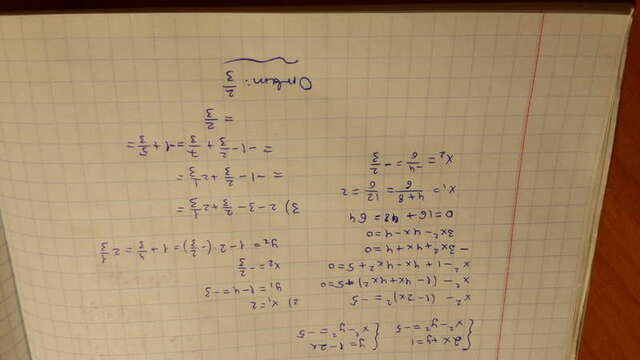 {2x+y=1
x²-y²=-5
{y=1-2x
x²-y²=-5
x²-(1-2x)²=-5
x²-(1-4x+4x²)+5=0
x²-1+4x-4x²+5=0
-3x²+4x+4=0
3x²-4x-4=0
D=16+48=64
x₁=(4+8)/6=12/6=2
x₂=-4/6=-2/3
2) x₁=2
y₁=1-4=-3
x₂=-2/3
y₂=1-2·(-2/3)=1+4/3=2 1/3
3) 2-3-2/3+2 1/3=
=-1-2/3+2 1/3=
=-1-2/3+7/3=-1+5/3=
=2/3
Ответ: 2/3